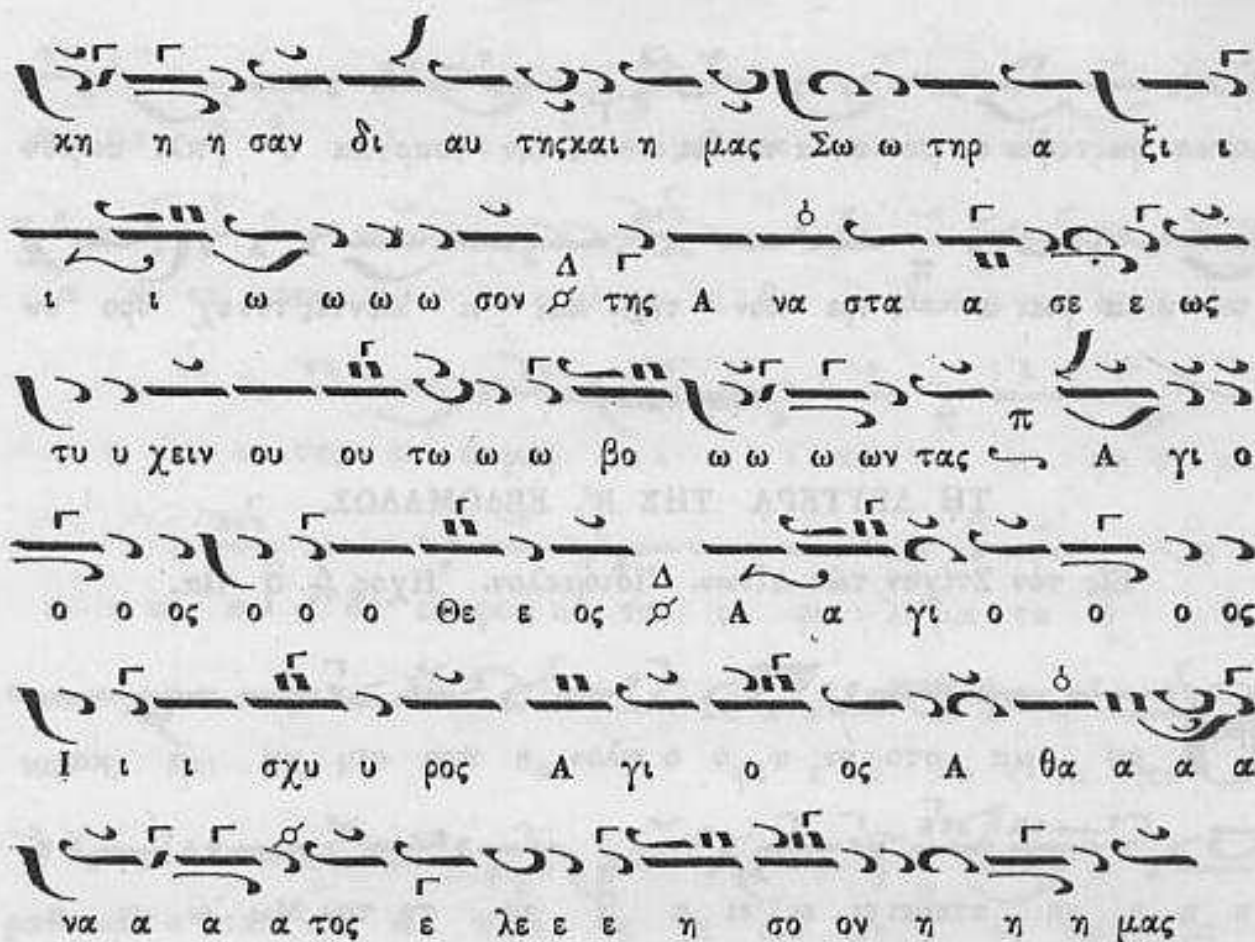 κη η η σαν δι αυ της και η μας Σω ω τηρ α ξι ι
ι ι ω ω ω ω σον Δ της Α να στα α σε ε ως
τυ υ χειν ου ου τω ω ω βο ω ω ω ων τας π Α γι ο
ο ο ος ο ο ο Θε ε ος Δ Α α γι ο ο ο ος
Ι ι ι σχυ υ ρος Α γι ο ος Α θα α α α
να α α α τος ε λε ε ε η σο ον η η η μας